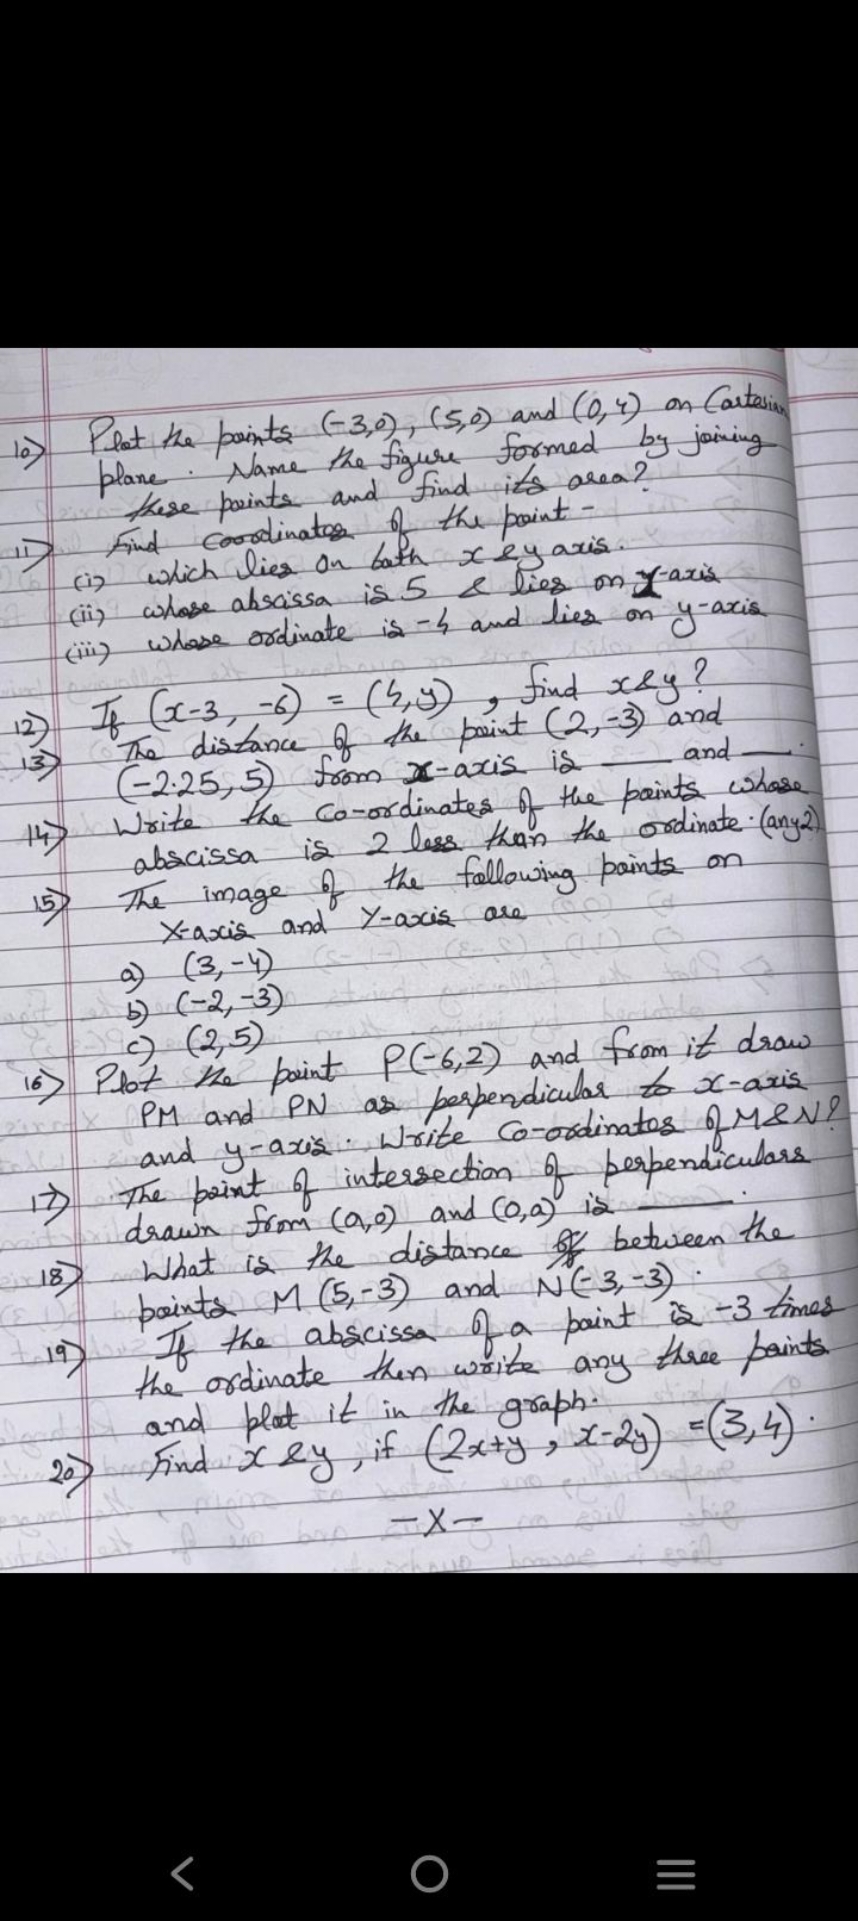 10) Plot the points (-3,0), (5,0) and (0,4) on Cartesian
plane. Name the figure formed by joining
these points and find its area?
11) Find coordinates of the point -
(i) which lies on both x & y axis.
(ii) whose abscissa is 5 & lies on x-axis
(iii) whose ordinate is -4 and lies on y-axis
12) If (x-3, -6) = (4,y), find x & y?
13) The distance of the point (2,-3) and
(-2.25, 5) from x-axis is ___ and ___.
14) Write the co-ordinates of the points whose
abscissa is 2 less than the ordinate. (any 2)
15) The image of the following points on
X-axis and Y-axis are
a) (3,-4)
b) (-2,-3)
c) (2,5)
16) Plot the point P(-6,2) and from it draw
PM and PN as perpendicular to x-axis
and y-axis. Write Co-ordinates of M & N?
17) The point of intersection of perpendiculars
drawn from (a,0) and (0,a) is ___.
18) What is the distance between the
points M (5,-3) and N(-3,-3).
19) If the abscissa of a point is -3 times
the ordinate then write any three points
and plot it in the graph.
20) Find x & y, if (2x+y, x-2y) = (3,4).
-X-